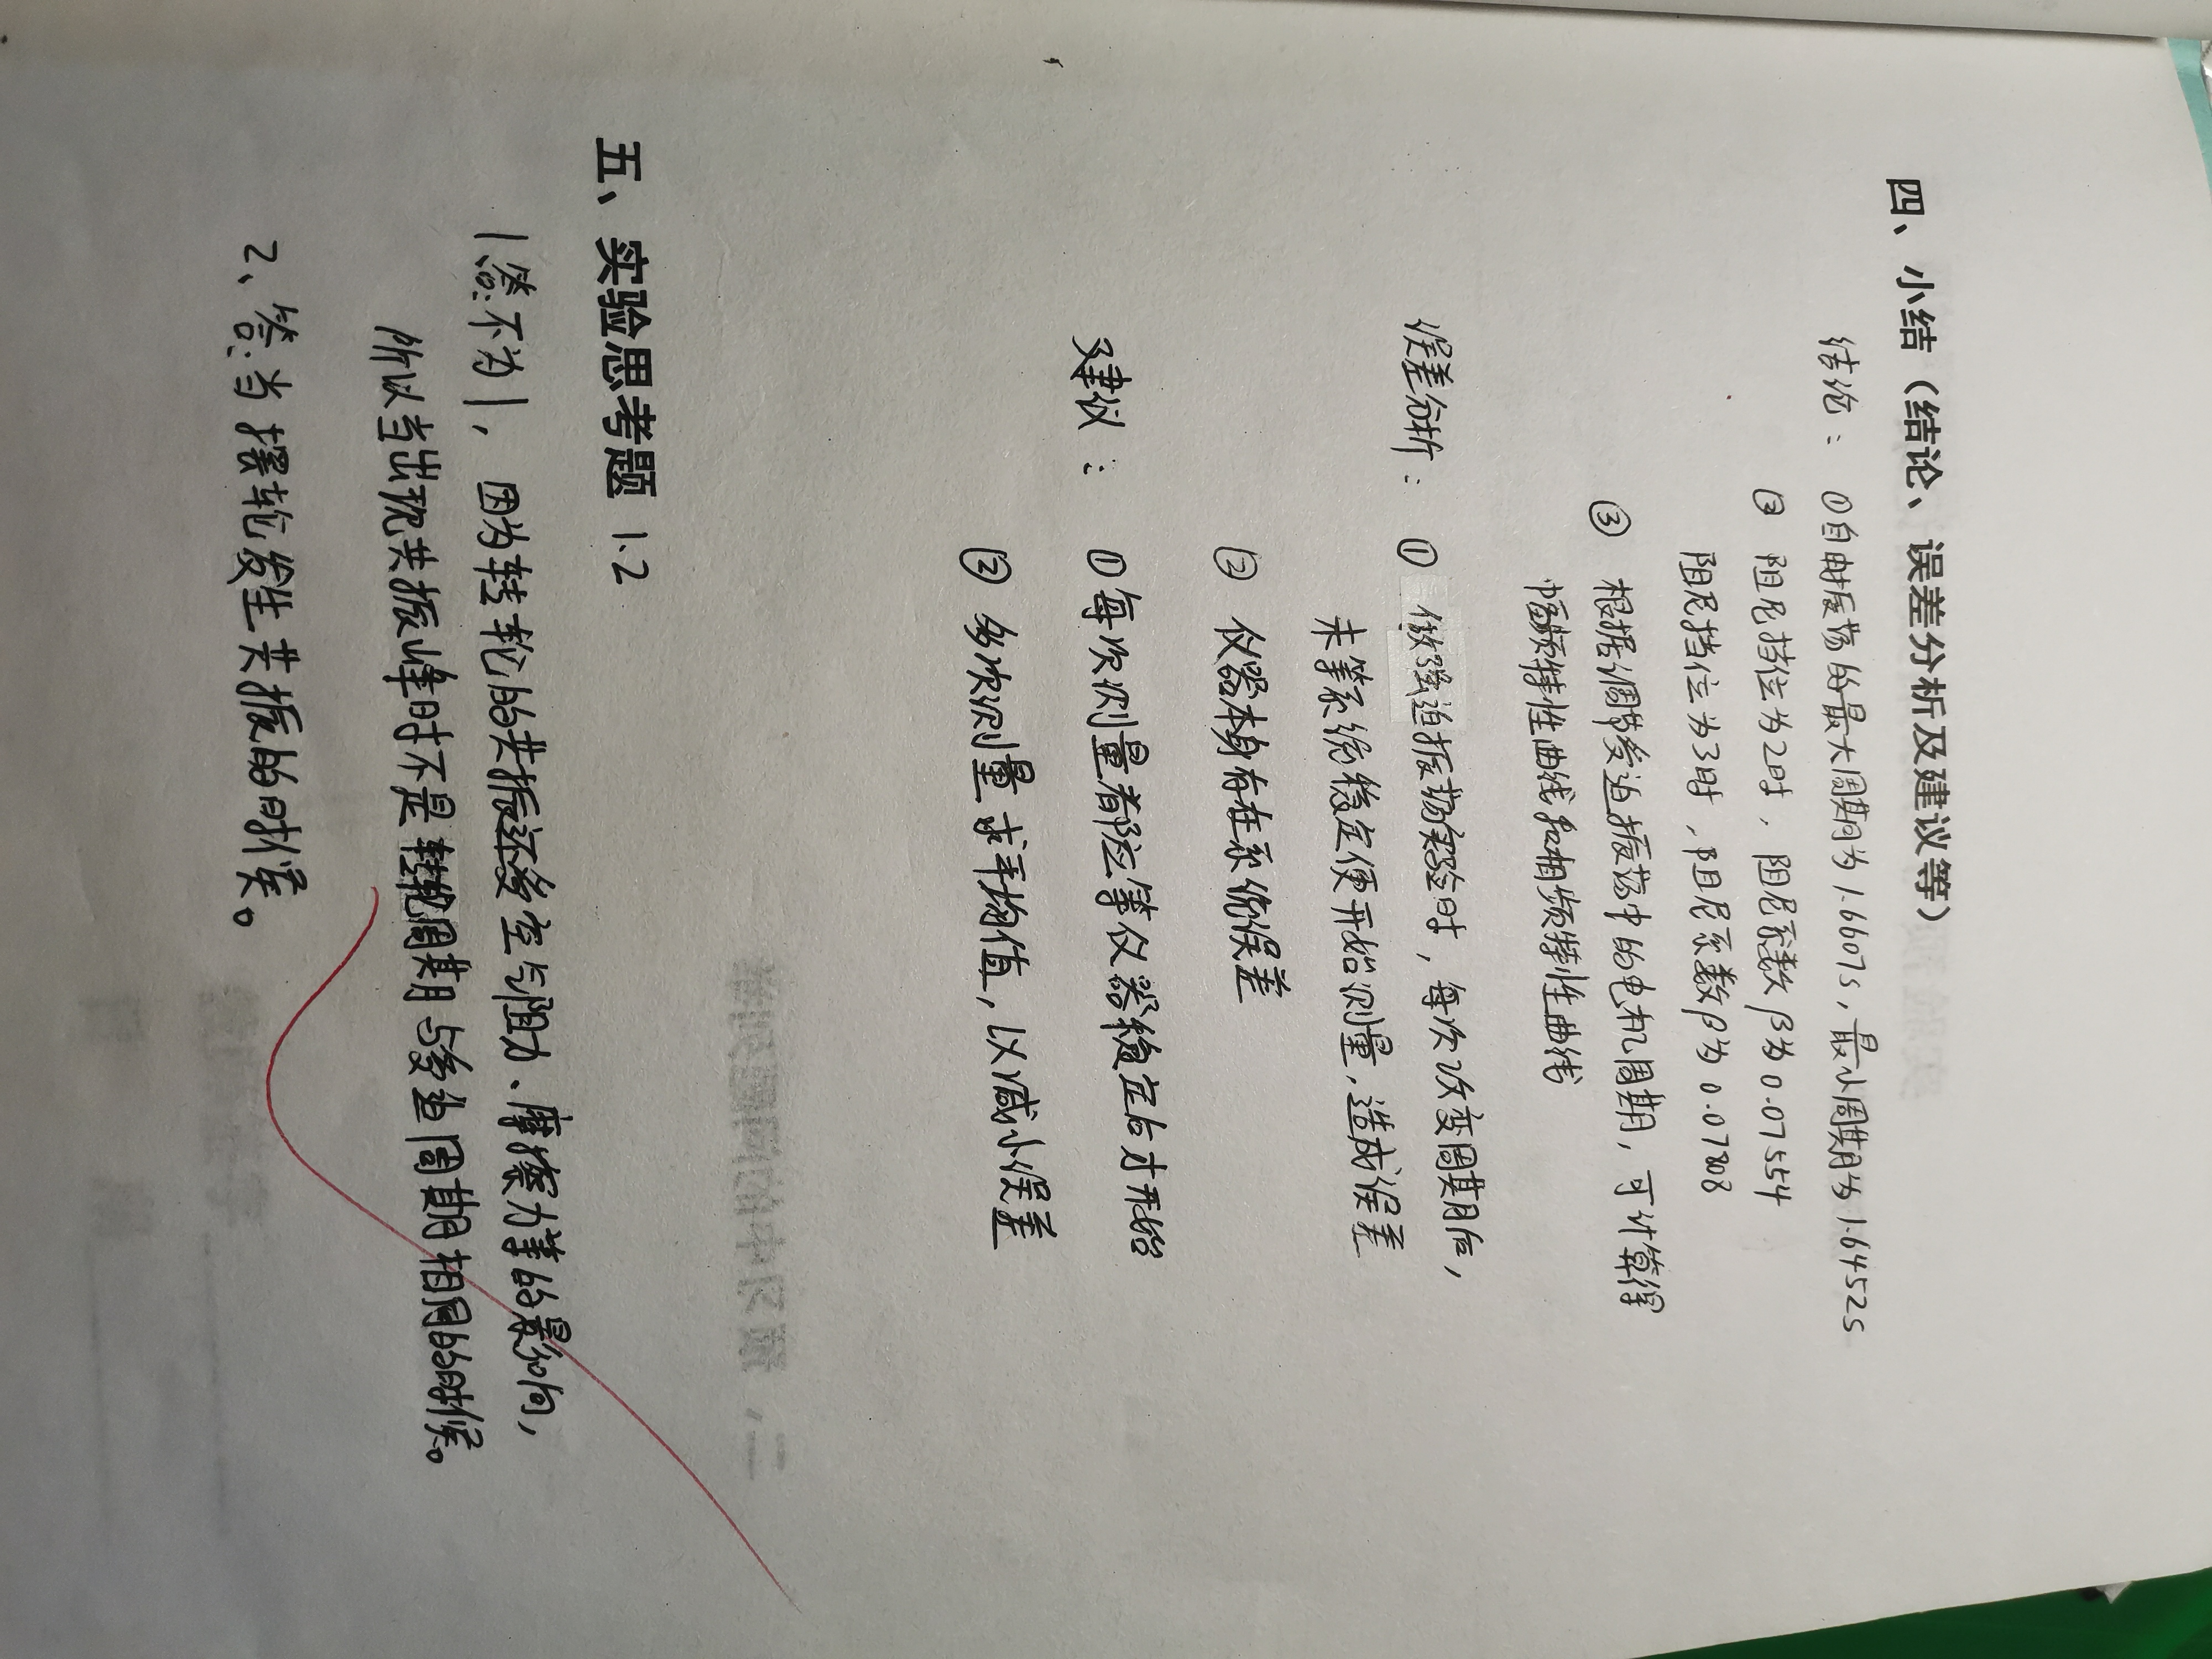 四、小结（结论、误差分析及建议等）
结论：①自由振荡的最大周期为1.6607s，最小周期为1.6452s
② 阻尼挡位为2时，阻尼系数β为0.07554
阻尼挡位为3时，阻尼系数β为0.07808
③ 根据调节受迫振荡中的电机周期，可计算得
幅频特性曲线和相频特性曲线
误差分析：① 做强迫振荡实验时，每次改变周期后，
未等系统稳定便开始测量，造成误差
② 仪器本身存在系统误差
建议：①每次测量都应等仪器稳定后才开始
② 多次测量求平均值，以减小误差
五、实验思考题 1.2
1、答：不为1，因为转轮的共振还受空气阻力、摩擦力等的影响，
所以当出现共振峰时不是转轮周期与受迫周期相同的时候。
2、答：当摆轮发生共振的时候。